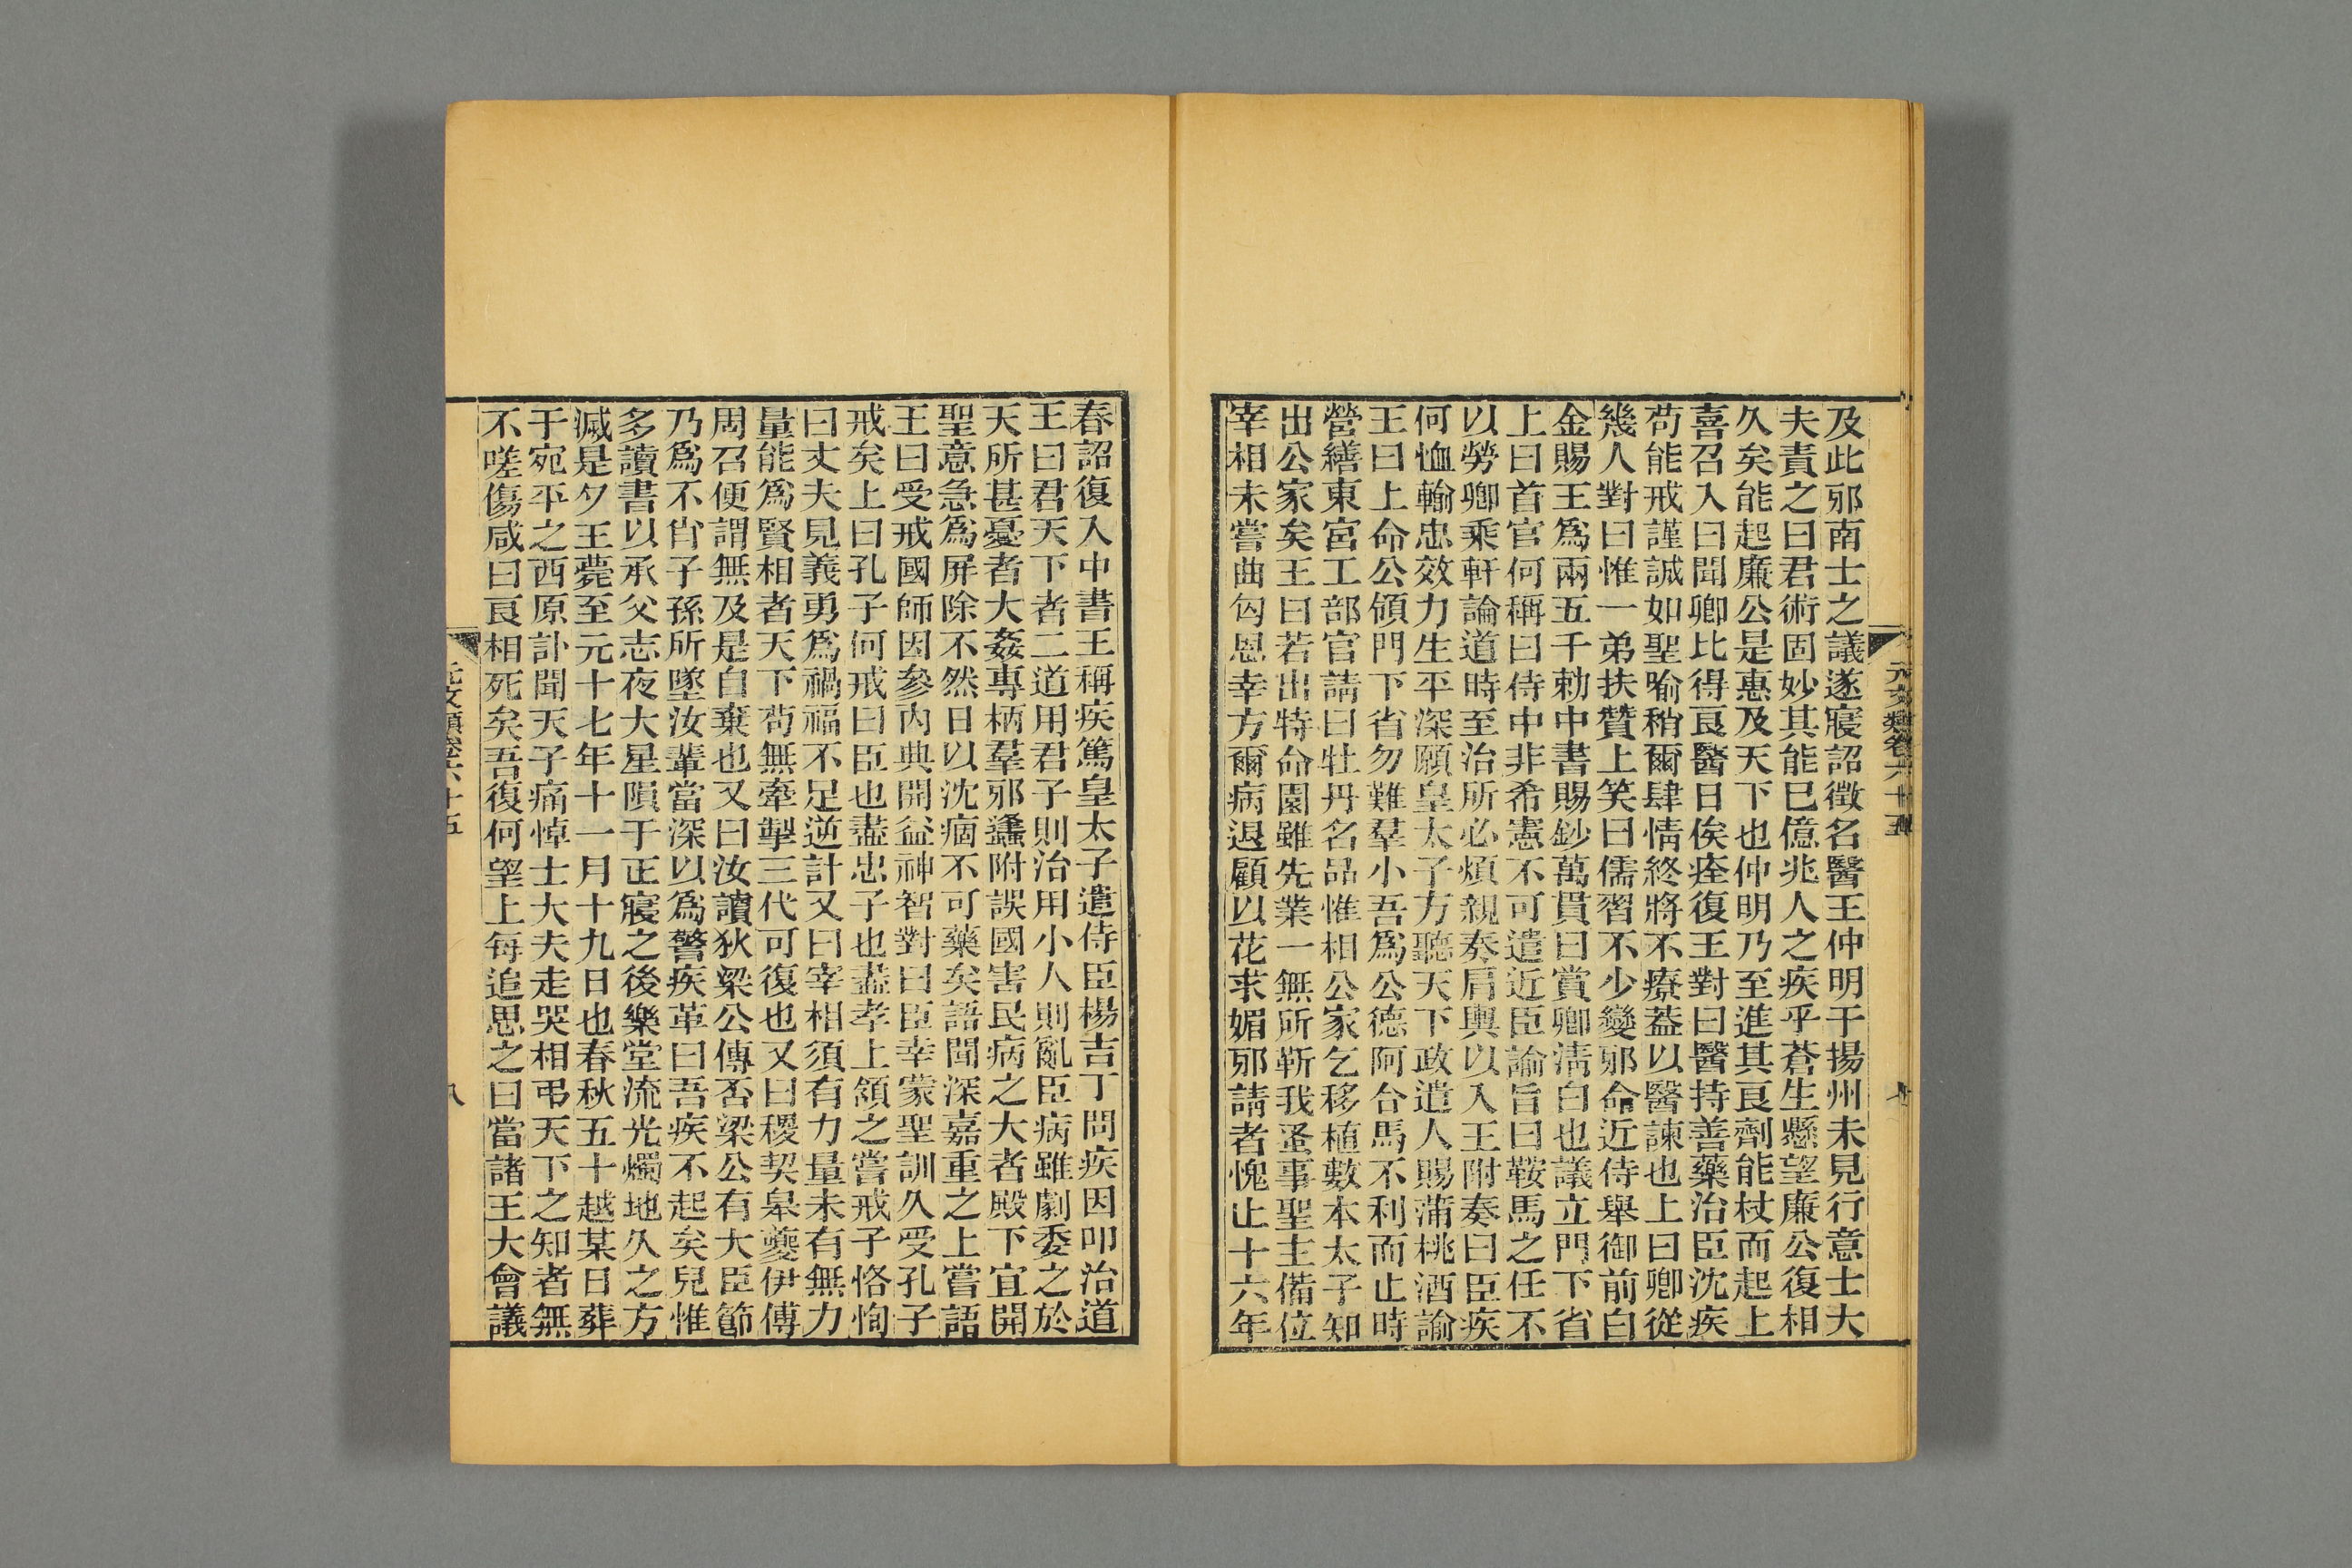 元文類卷六十五
七
及此邪南士之議遂寢詔徵名醫王仲明于揚州未見行意士大
夫責之曰君術固妙其能已億兆人之疾乎蒼生懸望廉公復相
久矣能起廉公是惠及天下也仲明乃至進其良劑能杖而起上
喜召入曰聞卿比得良醫日俟痊復王對曰醫持善藥治臣沈疾
苟能戒謹誠如聖喻稍爾肆情終將不療葢以醫諫也上曰卿從
幾人對曰惟一弟扶贊上笑曰儒習不少變邪命近侍舉御前白
金賜王爲兩五千勅中書賜鈔萬貫曰賞卿淸白也議立門下省
上曰首官何稱曰侍中非希憲不可遣近臣諭旨曰鞍馬之任不
以勞卿乘軒論道時至治所必煩親奏肩輿以入王附奏曰臣疾
何恤輸忠效力生平深願皇太子方聽天下政遣人賜蒲桃酒諭
王曰上命公領門下省勿難羣小吾爲公德阿合馬不利而止時
營繕東宮工部官請曰牡丹名品惟相公家乞移植數本太子知
出公家矣王曰若出特命園雖先業一無所靳我蚤事聖主備位
宰相未嘗曲匃恩幸方爾病退顧以花求媚邪請者愧止十六年
春詔復入中書王稱疾篤皇太子遣侍臣楊吉丁問疾因叩治道
王曰君天下者二道用君子則治用小人則亂臣病雖劇委之於
天所甚憂者大姦專柄羣邪蠭附誤國害民病之大者殿下宜開
聖意急爲屏除不然日以沈痼不可藥矣語聞深嘉重之上嘗語
王曰受戒國師因參內典開益神智對曰臣幸蒙聖訓久受孔子
戒矣上曰孔子何戒曰臣也盡忠子也盡孝上頷之嘗戒子恪恂
曰丈夫見義勇爲禍福不足逆計又曰宰相須有力量未有無力
量能爲賢相者天下苟無牽掣三代可復也又曰稷契皋夔伊傅
周召便謂無及是自棄也又曰汝讀狄梁公傳否梁公有大臣節
乃爲不肖子孫所墜汝輩當深以爲警疾革曰吾疾不起矣兒惟
多讀書以承父志夜大星隕于正寢之後樂堂流光燭地久之方
滅是夕王薨至元十七年十一月十九日也春秋五十越某日葬
于宛平之西原訃聞天子痛悼士大夫走哭相弔天下之知者無
不嗟傷咸曰良相死矣吾復何望上每追思之曰當諸王大會議
元文類卷六十五
八